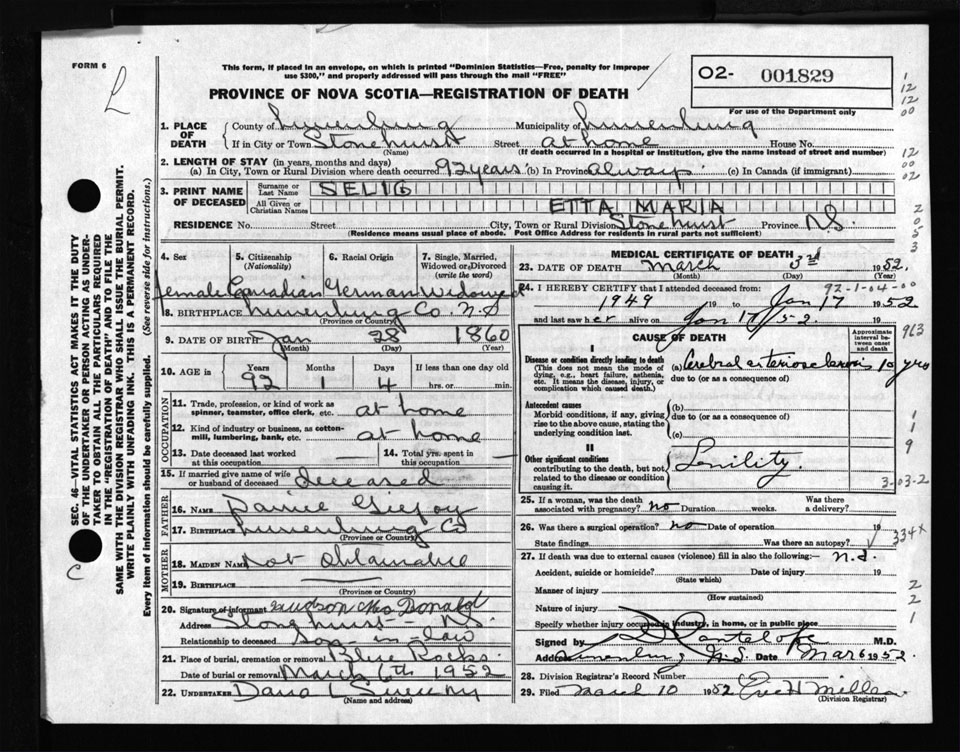 FORM 6
This form, if placed in an envelope, on which is printed "Dominion Statistics—Free, penalty for improper
use $300," and properly addressed will pass through the mail "FREE"
O2- 001829
For use of the Department only
PROVINCE OF NOVA SCOTIA—REGISTRATION OF DEATH
1. PLACE OF DEATH { County of Lunenburg Municipality of Lunenburg
If in City or Town Stonehurst Street at home House No.
(Name) (If death occurred in a hospital or institution, give the name instead of street and number)
2. LENGTH OF STAY (in years, months and days)
(a) In City, Town or Rural Division where death occurred 92 years (b) In Province always (c) In Canada (if immigrant)
3. PRINT NAME OF DECEASED { Surname or Last Name SELIG
All Given or Christian Names ETTA MARIA
RESIDENCE No. Street City, Town or Rural Division Stonehurst Province N.S.
(Residence means usual place of abode. Post Office Address for residents in rural parts not sufficient)
4. Sex 5. Citizenship (Nationality) 6. Racial Origin 7. Single, Married, Widowed or Divorced (write the word)
female Canadian German widowed
8. BIRTHPLACE Lunenburg Co. N.S
(Province or Country)
9. DATE OF BIRTH Jan 28 1860
(Month) (Day) (Year)
10. AGE in Years Months Days If less than one day old
92 1 4 hrs. or min.
OCCUPATION
11. Trade, profession, or kind of work as spinner, teamster, office clerk, etc. at home
12. Kind of industry or business, as cotton-mill, lumbering, bank, etc. at home
13. Date deceased last worked at this occupation — 14. Total yrs. spent in this occupation —
15. If married give name of wife or husband of deceased deceased
FATHER
16. Name
17. Birthplace Lunenburg Co
(Province or Country)
MOTHER
18. MAIDEN NAME Not Obtainable
19. BIRTHPLACE —
(Province or Country)
20. Signature of informant Judson MacDonald
Address Stonehurst N.S.
Relationship to deceased Son-in-law
21. Place of burial, cremation or removal Blue Rocks
Date of burial or removal March 6th 1952
22. UNDERTAKER
(Name and address)
MEDICAL CERTIFICATE OF DEATH
23. DATE OF DEATH March 3rd 1952
(Month) (Day) (Year)
92-1-04-00
24. I HEREBY CERTIFY that I attended deceased from:
1949 19 to Jan 17 1952
and last saw her alive on Jan 17/52
CAUSE OF DEATH
Approximate interval between onset and death
963
I
Disease or condition directly leading to death (a) Cerebral arteriosclerosis 10 yrs
(This does not mean the mode of dying, e.g., heart failure, asthenia, etc. It means the disease, injury, or complication which caused death.) due to (or as a consequence of)
Antecedent causes (b)
Morbid conditions, if any, giving rise to the above cause, stating the underlying condition last. due to (or as a consequence of)
(c)
II
Other significant conditions
contributing to the death, but not related to the disease or condition causing it. Senility.
3-03-2
25. If a woman, was the death associated with pregnancy? no Duration weeks. Was there a delivery?
26. Was there a surgical operation? no Date of operation 19
State findings Was there an autopsy?
334x
27. If death was due to external causes (violence) fill in also the following:— n.d.
Accident, suicide or homicide? Date of injury 19
(State which)
Manner of injury
(How sustained)
Nature of injury
Specify whether injury occurred in industry, in home, or in public place
Signed by M.D.
Address Lunenburg N.S. Date Mar 6 1952.
28. Division Registrar's Record Number
29. Filed March 10 1952
(Division Registrar)
SEC. 46—VITAL STATISTICS ACT MAKES IT THE DUTY
OF THE UNDERTAKER OR PERSON ACTING AS UNDER-
TAKER TO OBTAIN ALL THE PARTICULARS REQUIRED
IN THE "REGISTRATION OF DEATH" AND TO FILE THE
SAME WITH THE DIVISION REGISTRAR WHO SHALL ISSUE THE BURIAL PERMIT.
WRITE PLAINLY WITH UNFADING INK. THIS IS A PERMANENT RECORD.
Every item of information should be carefully supplied. (See reverse side for instructions.)